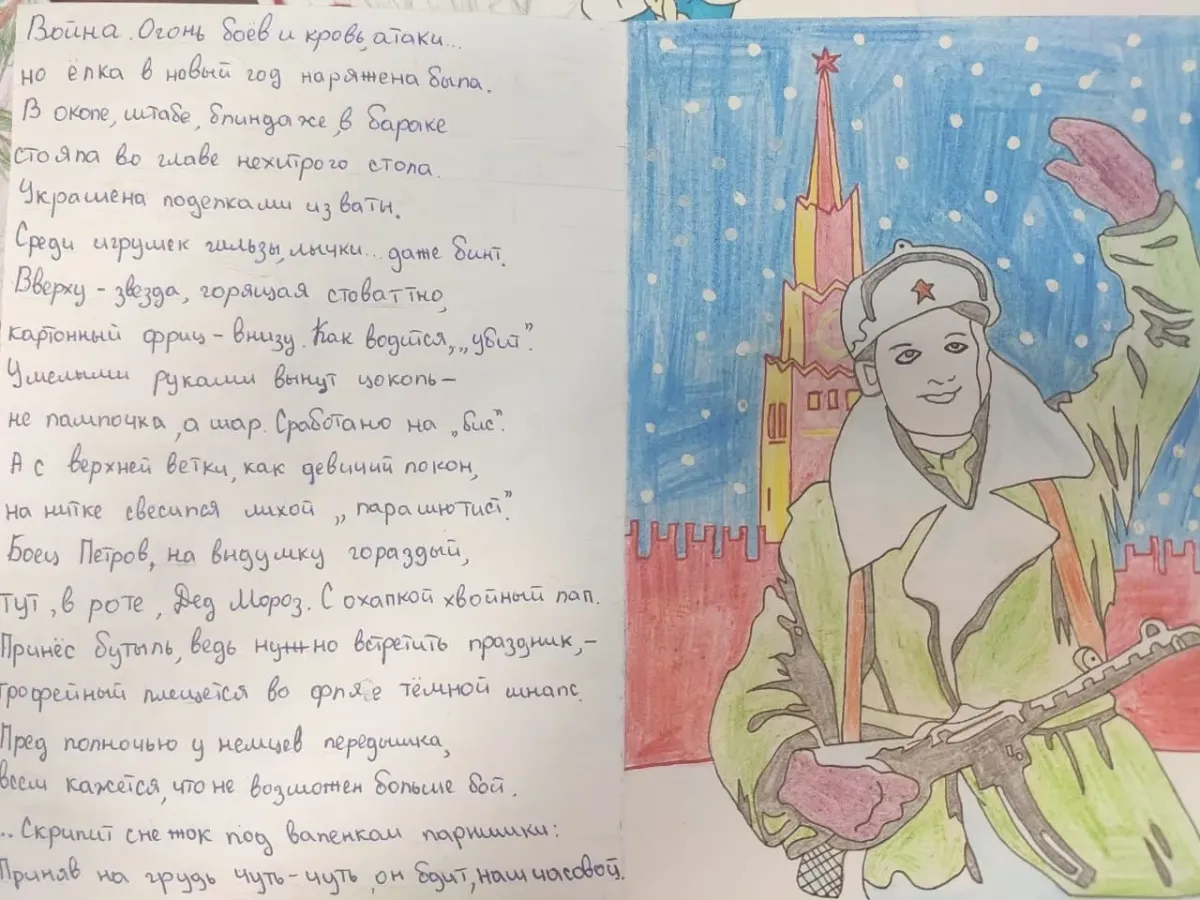 Война. Огонь боёв и кровь, атаки...
но ёлка в новый год наряжена была.
В окопе, штабе, блиндаже, в бараке
стояла во главе нехитрого стола.
Украшена поделками из ваты.
Среди игрушек гильзы, лычки... даже бинт.
Вверху - звезда, горящая стоваттно,
картонный фриц - внизу. Как водится, „убит”.
Умелыми руками вынут цоколь -
не лампочка, а шар. Сработано на „бис”.
А с верхней ветки, как девичий локон,
на нитке свесился лихой „парашютист”.
Боец Петров, на выдумку гораздый,
тут, в роте, Дед Мороз. С охапкой хвойный лап.
Принёс бутыль, ведь нужно встретить праздник, -
трофейный плещется во фляге тёмной шнапс.
Пред полночью у немцев передышка,
всем кажется, что не возможен больше бой.
...Скрипит снежок под валенкам парнишки:
Приняв на грудь чуть-чуть, он бдит, наш часовой.